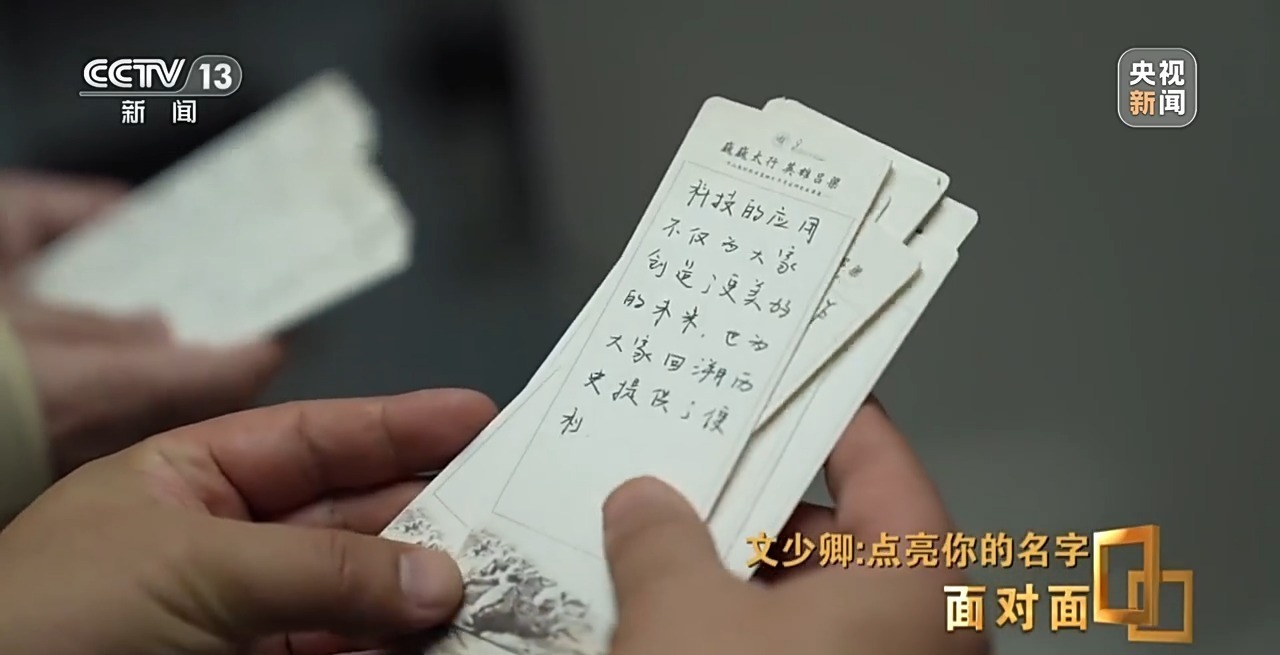 CCTV 13
新闻
央视
新闻
巍巍太行 英雄吕梁
科技的应用
不仅为大家
创造了更美好
的未来，也为
大家回溯历
史提供了便
利
文少卿:点亮你的名字
面对面